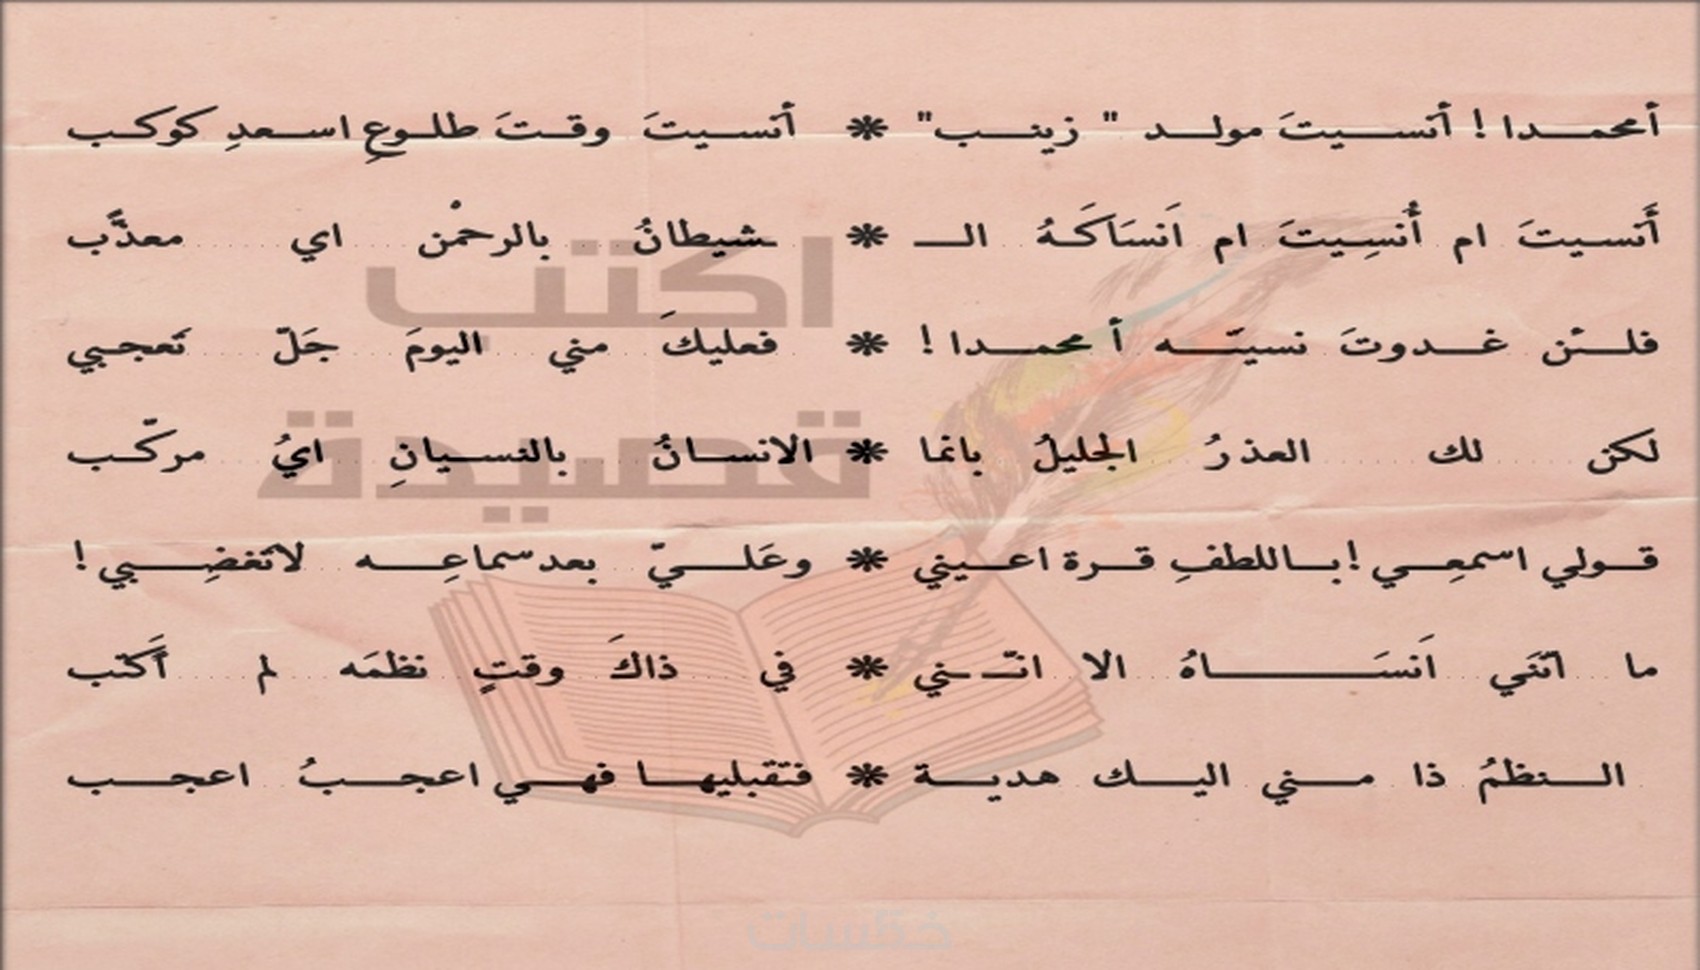 أمحمدا ! أنسيتَ مولد " زينب" * أنسيتَ وقتَ طلوعِ اسعدِ كوكب
أَنسيتَ ام أُنسِيتَ ام اَنسَاكَهُ الـ * ـشيطانُ بالرحمْن اي معذَّب
فلئن غدوتَ نسيتَه أ محمدا ! * فعليكَ مني اليومَ جَلّ تَعجبي
لكن لك العذرُ الجليلُ بانما * الانسانُ بالنسيانِ ايُ مركّب
قولي اسمعِي ! باللطفِ قرة اعيني * وعَليّ بعد سماعِه لاتَغضِبي !
ما اَنّني اَنسَاهُ الا انّـني * في ذاكَ وقتٍ نظمَه لم أَكتب
النظمُ ذا مني اليك هدية * فتقبليها فهي اعجبُ اعجب
اكتب
قصيدة
خمسات